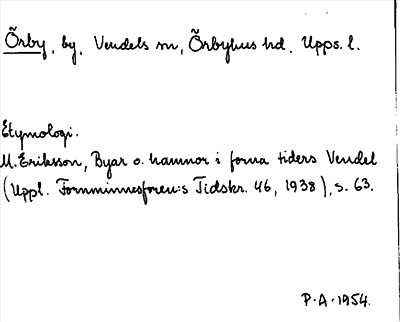 Örby, by, Vendels sn, Örbyhus hd. Upps. l.
Etymologi.
M. Eriksson, Byar o. hamnor i forna tiders Vendel
(Uppl. Fornminnesfören:s Tidskr. 46, 1938), s. 63.
P.A. 1954.